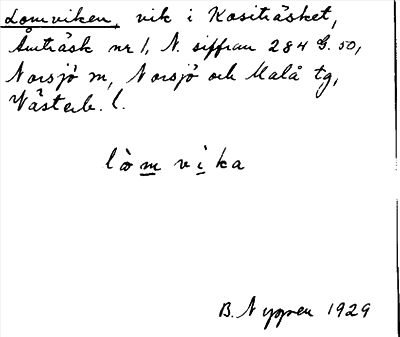 Lomviken, vik i Kositräsket,
Åmträsk nr 1, N. siffran 284 G. 50,
Norsjö sn, Norsjö och Malå tg,
Västerb. l.
lò m v i ka
B. Nygren 1929